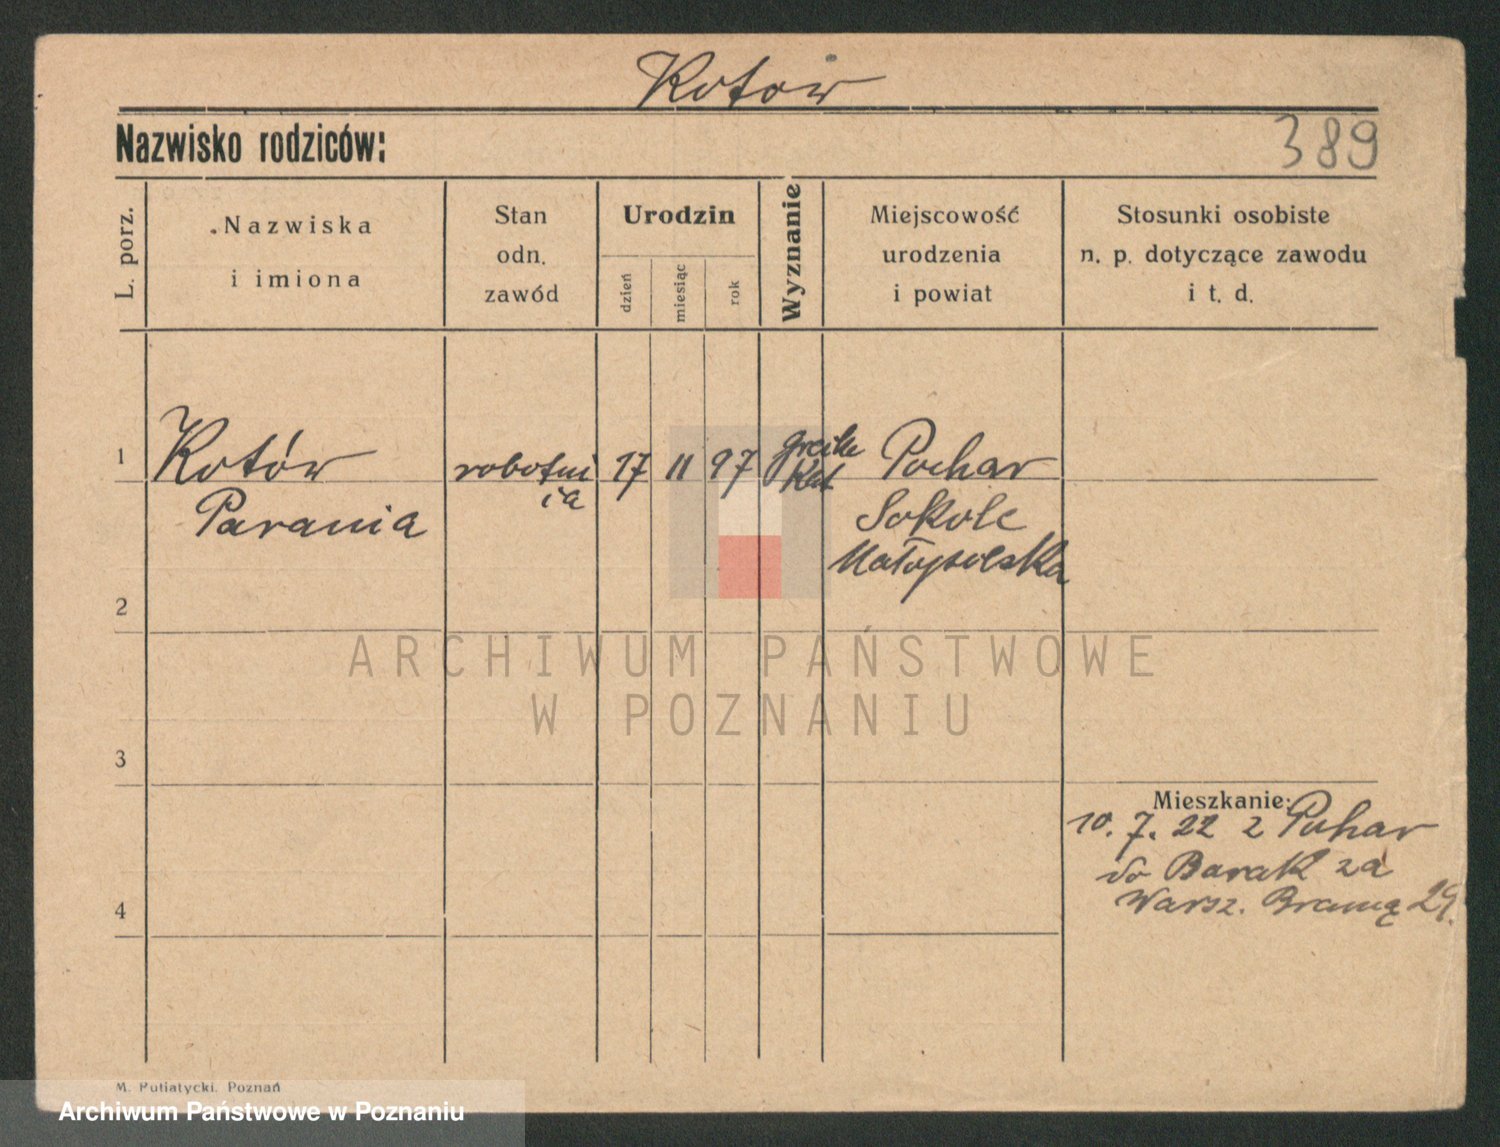 Kotów
Nazwisko rodziców:
389
L. porz.
Nazwiska
i imiona
Stan
odn.
zawód
Urodzin
dzień
miesiąc
rok
Wyznanie
Miejscowość
urodzenia
i powiat
Stosunki osobiste
n. p. dotyczące zawodu
i t. d.
1
Kotów
Parania
robotni
ca
17 11 97
Kat
Pochar
Sokole
Małopolska
2
3
4
Mieszkanie:
10. 7. 22 z Pohar
do Barak za
Warsz. Bramą 29.
ARCHIWUM PAŃSTWOWE
W POZNANIU
M. Putiatycki. Poznań
Archiwum Państwowe w Poznaniu